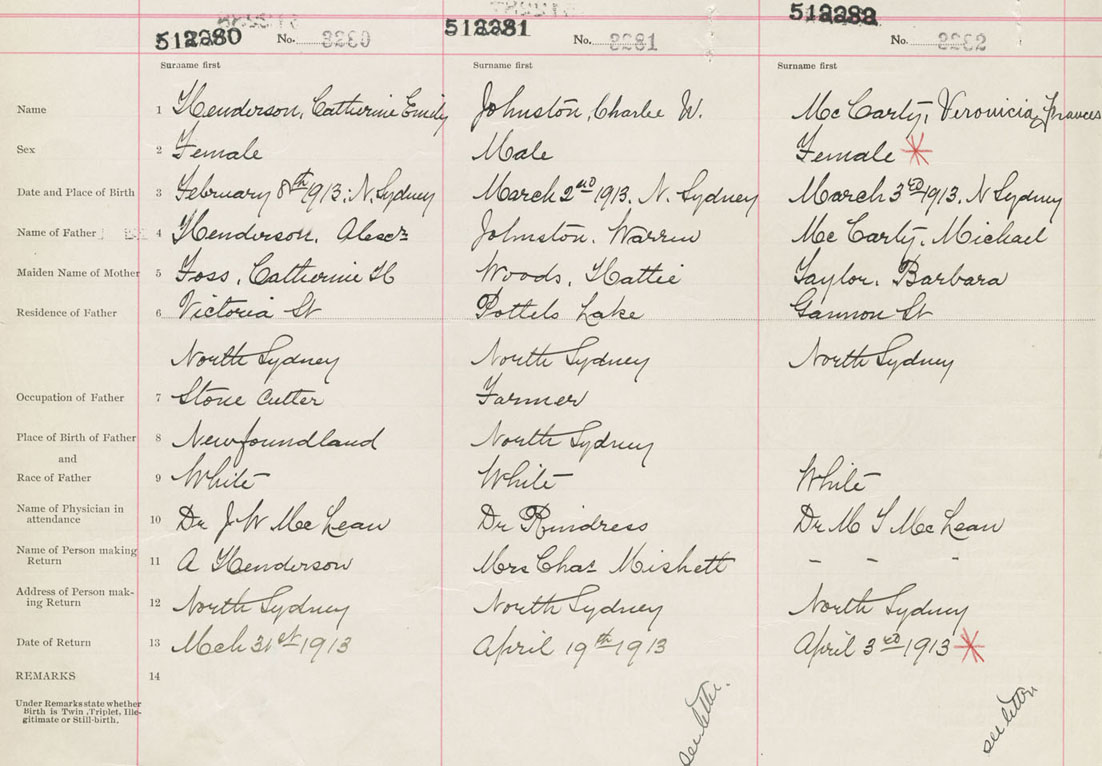 512280 No. 3280 512281 No. 3281 512282 No. 3282
Surname first Surname first Surname first
Name 1 Henderson, Catherine Emily Johnston, Charlee W. Mc Carty, Veronicia, Frances
Sex 2 Female Male Female *
Date and Place of Birth 3 February 8th 1913: N. Sydney March 2nd 1913, N. Sydney March 3rd 1913, N Sydney
Name of Father 4 Henderson, Alexr Johnston, Warren Mc Carty, Michael
Maiden Name of Mother 5 Foss, Catherine H Woods, Hattie Taylor, Barbara
Residence of Father 6 Victoria St Pottels Lake Gannon St
North Sydney North Sydney North Sydney
Occupation of Father 7 Stone Cutter Farmer
Place of Birth of Father 8 Newfoundland North Sydney
and
Race of Father 9 White White White
Name of Physician in
attendance 10 Dr J W Mc Lean Dr Rindress Dr M S Mc Lean
Name of Person making
Return 11 A Henderson Mrs Chas - - -
Address of Person mak-
ing Return 12 North Sydney North Sydney North Sydney
Date of Return 13 Mch 31st 1913 April 19th 1913 April 3rd 1913 *
REMARKS 14
Under Remarks state whether
Birth is Twin, Triplet, Ille-
gitimate or Still-birth.
see letter. see letter